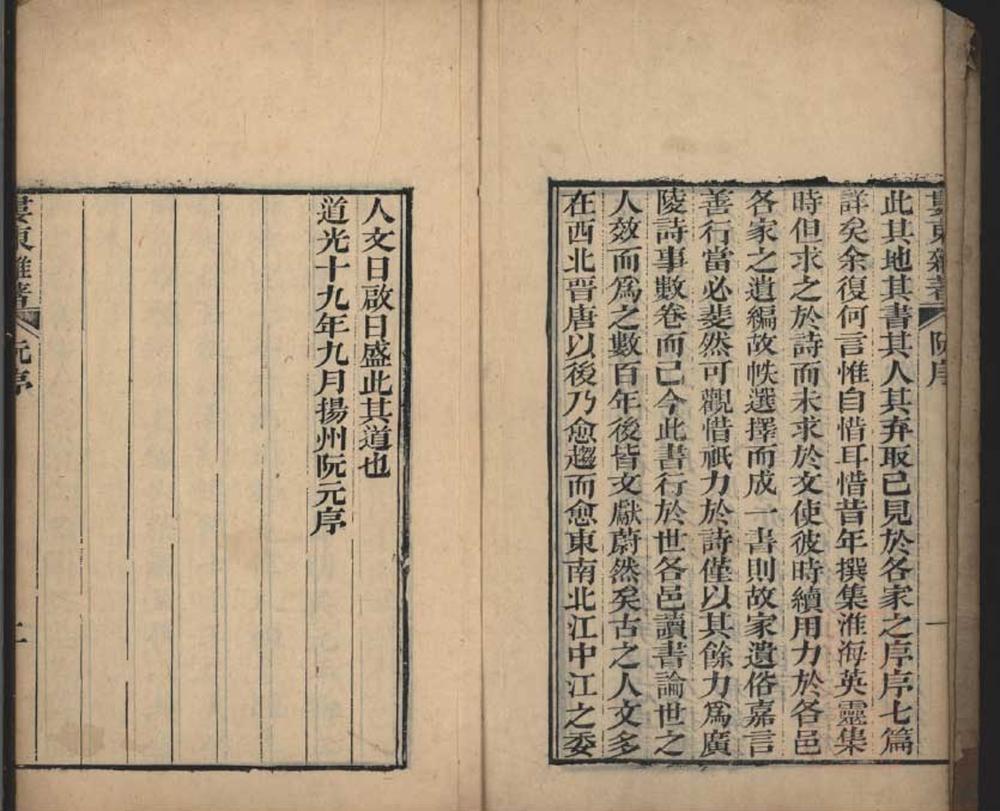 婁東雜著
阮序
一
此其地其書其人其弃取已見於各家之序序七篇
詳矣余復何言惟自惜耳惜昔年撰集淮海英靈集
時但求之於詩而未求於文使彼時續用力於各邑
各家之遺編故帙選擇而成一書則故家遺俗嘉言
善行當必斐然可觀惜祇力於詩僅以其餘力爲廣
陵詩事數卷而已今此書行於世各邑讀書論世之
人效而爲之數百年後皆文獻蔚然矣古之人文多
在西北晋唐以後乃愈趨而愈東南北江中江之委
人文日啟日盛此其道也
道光十九年九月揚州阮元序
婁東雜著
阮序
二